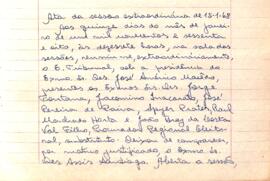 Ata da sessão extraordinária de 15-1-68
Aos quinze dias do mês de janei-
ro de mil novecentos e sessenta
e oito, às dezessete horas, na sala das
sessões, reuniu-se, extraordinariamente,
o E. Tribunal, sob a presidência do
Exmo. Sr. Des. José Américo Macêdo,
presentes os Exmos. Srs. Drs. Jorge
Fontana, Jacomino Inacarato, José
Pereira de Paiva, Ayres Prates, Raul
Machado Horta e João Braz da Costa
Val Filho, Procurador Regional Eleito-
ral, substituto. Deixou de comparecer,
por motivo justificado, o Exmo. Sr.
Des. Assis Santiago. Aberta a sessão,